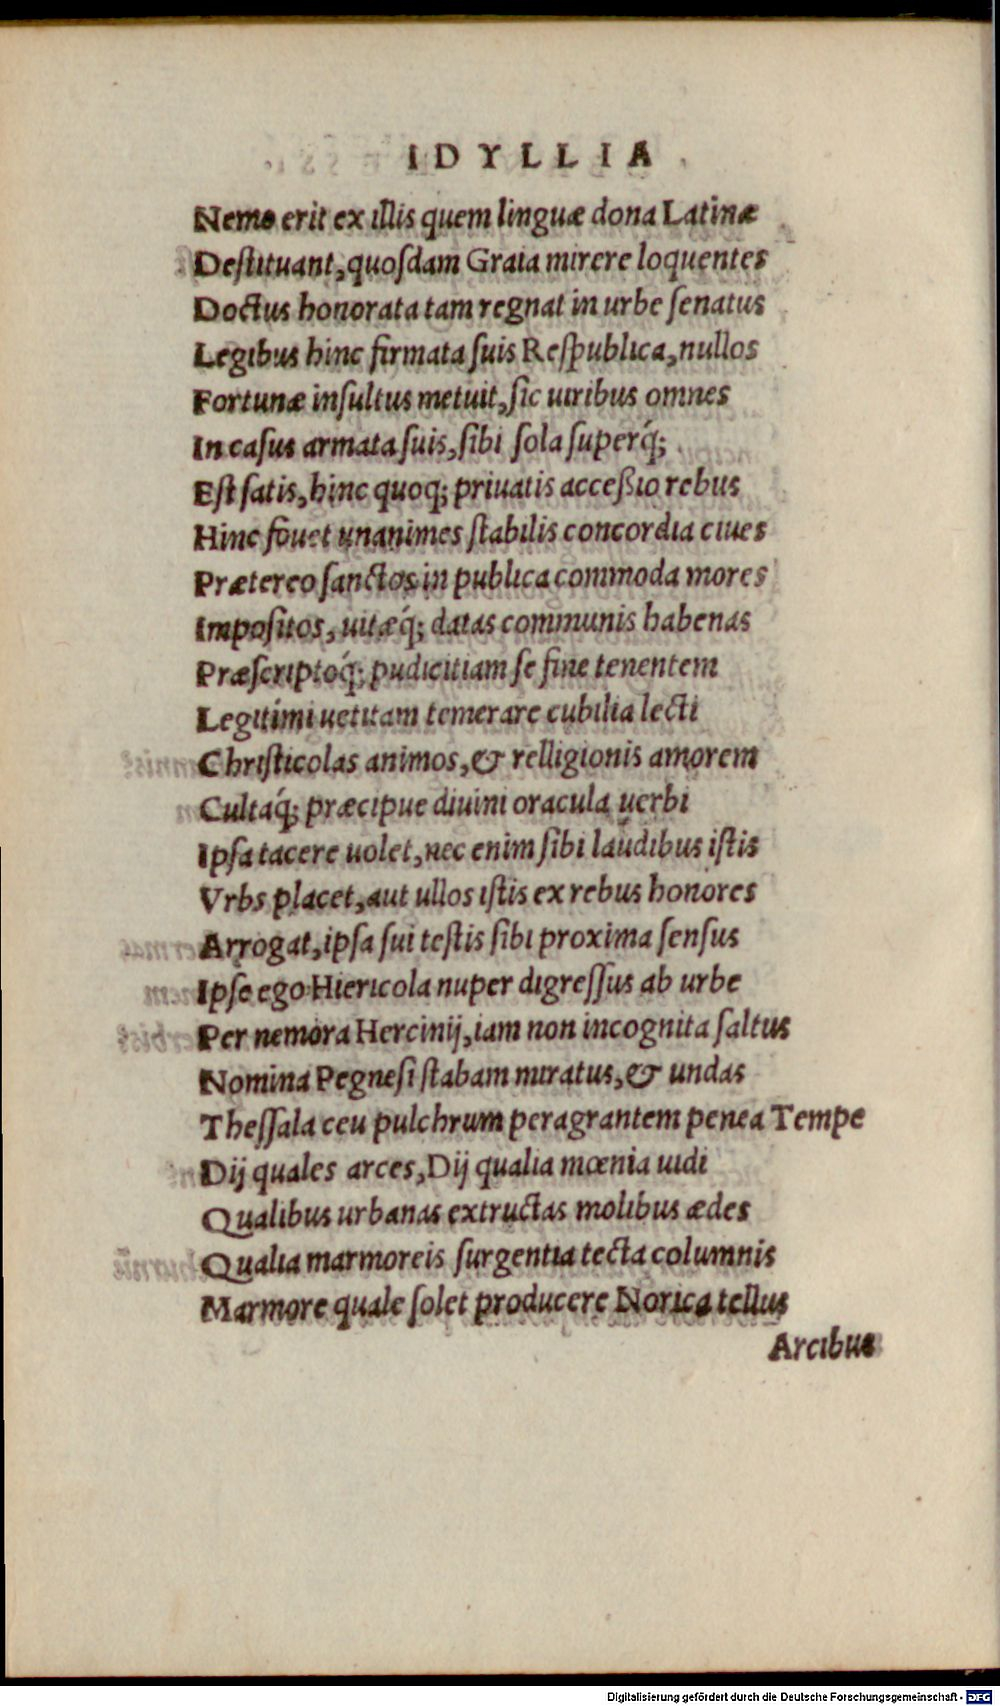 IDYLLIA
Nemo erit ex illis quem linguæ dona Latinæ
Deſtituant, quoſdam Graia mirere loquentes
Doctus honorata tam regnat in urbe ſenatus
Legibus hinc firmata ſuis Reſpublica, nullos
Fortunæ inſultus metuit, ſic uiribus omnes
In caſus armata ſuis, ſibi ſola ſuperq́;
Eſt ſatis, hinc quoq; priuatis acceßio rebus
Hinc fouet unanimes ſtabilis concordia ciues
Prætereo ſanctos in publica commoda mores
Impoſitos, uitæq́; datas communis habenas
Præſcriptoq́; pudicitiam ſe fine tenentem
Legitimi uetitam temerare cubilia lecti
Chriſticolas animos, & relligionis amorem
Cultaq́; præcipue diuini oracula uerbi
Ipſa tacere uolet, nec enim ſibi laudibus iſtis
Vrbs placet, aut ullos iſtis ex rebus honores
Arrogat, ipſa ſui teſtis ſibi proxima ſenſus
Ipſe ego Hiericola nuper digreſſus ab urbe
Per nemora Hercinij, iam non incognita ſaltus
Nomina Pegneſi ſtabam miratus, & undas
Theſſala ceu pulchrum peragrantem penea Tempe
Dij quales arces, Dij qualia mœnia uidi
Qualibus urbanas extructas molibus ædes
Qualia marmoreis ſurgentia tecta columnis
Marmore quale ſolet producere Norica tellus
Arcibus
Digitalisierung gefördert durch die Deutsche Forschungsgemeinschaft - DFG